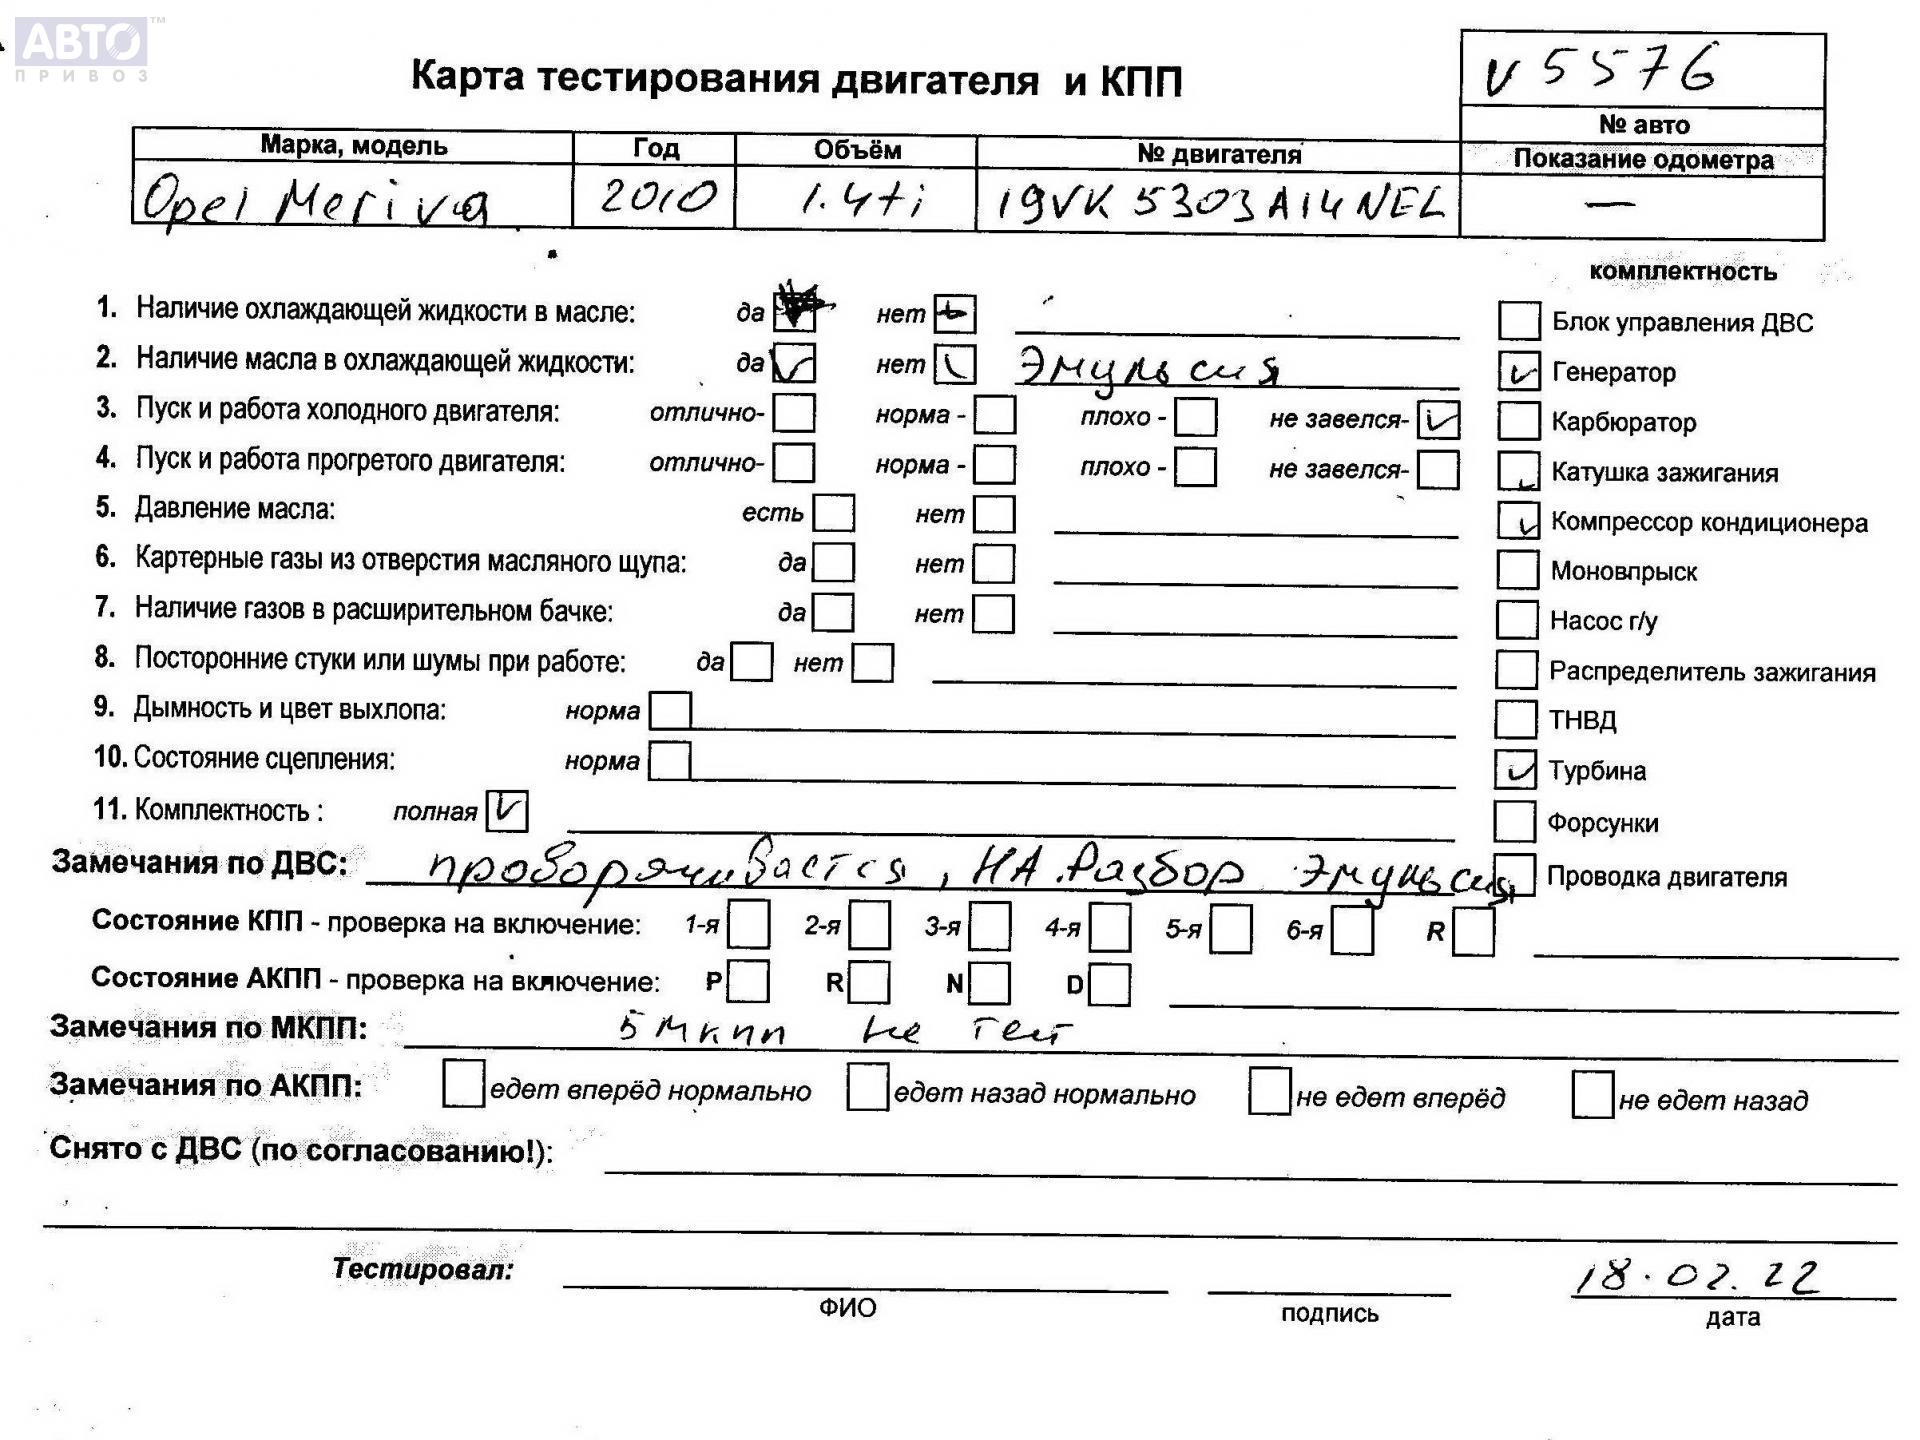 АВТО™
ПРИВОЗ
Карта тестирования двигателя и КПП
v5576
№ авто
Марка, модель Год Объём № двигателя Показание одометра
Opel Meriva 2010 1.4ti 19VK5303A14NEL —
комплектность
1. Наличие охлаждающей жидкости в масле: да нет
Блок управления ДВС
2. Наличие масла в охлаждающей жидкости: да нет Эмульсия
Генератор
3. Пуск и работа холодного двигателя: отлично- норма - плохо - не завелся-
Карбюратор
4. Пуск и работа прогретого двигателя: отлично- норма - плохо - не завелся-
Катушка зажигания
5. Давление масла: есть нет
Компрессор кондиционера
6. Картерные газы из отверстия масляного щупа: да нет
Моновпрыск
7. Наличие газов в расширительном бачке: да нет
Насос г/у
8. Посторонние стуки или шумы при работе: да нет
Распределитель зажигания
9. Дымность и цвет выхлопа: норма
ТНВД
10. Состояние сцепления: норма
Турбина
11. Комплектность : полная
Форсунки
Замечания по ДВС: проворачивается, НА Разбор Эмульсия
Проводка двигателя
Состояние КПП - проверка на включение: 1-я 2-я 3-я 4-я 5-я 6-я R
Состояние АКПП - проверка на включение: P R N D
Замечания по МКПП: 5 мкпп не тест
Замечания по АКПП: едет вперёд нормально едет назад нормально не едет вперёд не едет назад
Снято с ДВС (по согласованию!):
Тестировал:
18.02.22
ФИО подпись дата